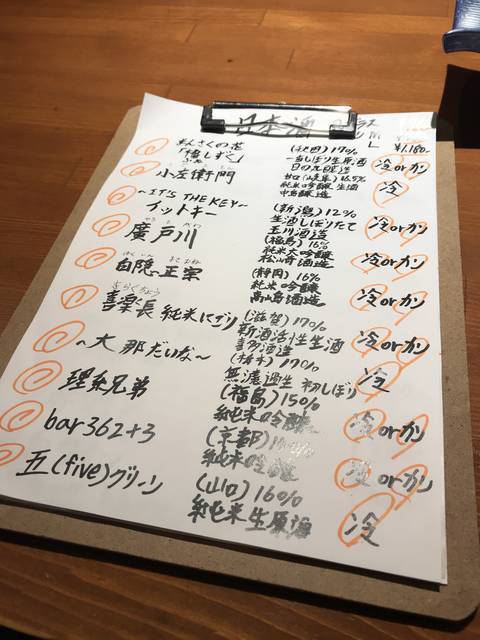 日本酒
¥1,180-
まんさくの花 (秋田)17% 冷orカン
一番しぼり生原酒
日の丸醸造
小左衛門 甘口(岐阜県)16.5% 冷
純米吟醸 生酒
中島醸造
〜IT'S THE KEY〜 (新潟)12% 冷orカン
イットキー 生酒しぼりたて
玉川酒造
廣戸川 (福島)16% 冷orカン
純米大吟醸
松崎酒造
白隠正宗 (静岡)16% 冷orカン
純米吟醸
高嶋酒造
喜楽長 純米にごり (滋賀)17% 冷orカン
新酒活性生酒
喜多酒造
〜大那だいな〜 (栃木)17% 冷
無濾過生 初しぼり
理系兄弟 (福島)15% 冷orカン
純米吟醸
bar362+3 (京都) 冷orカン
純米吟醸
五(five)グリーン (山口)16% 冷
純米生原酒